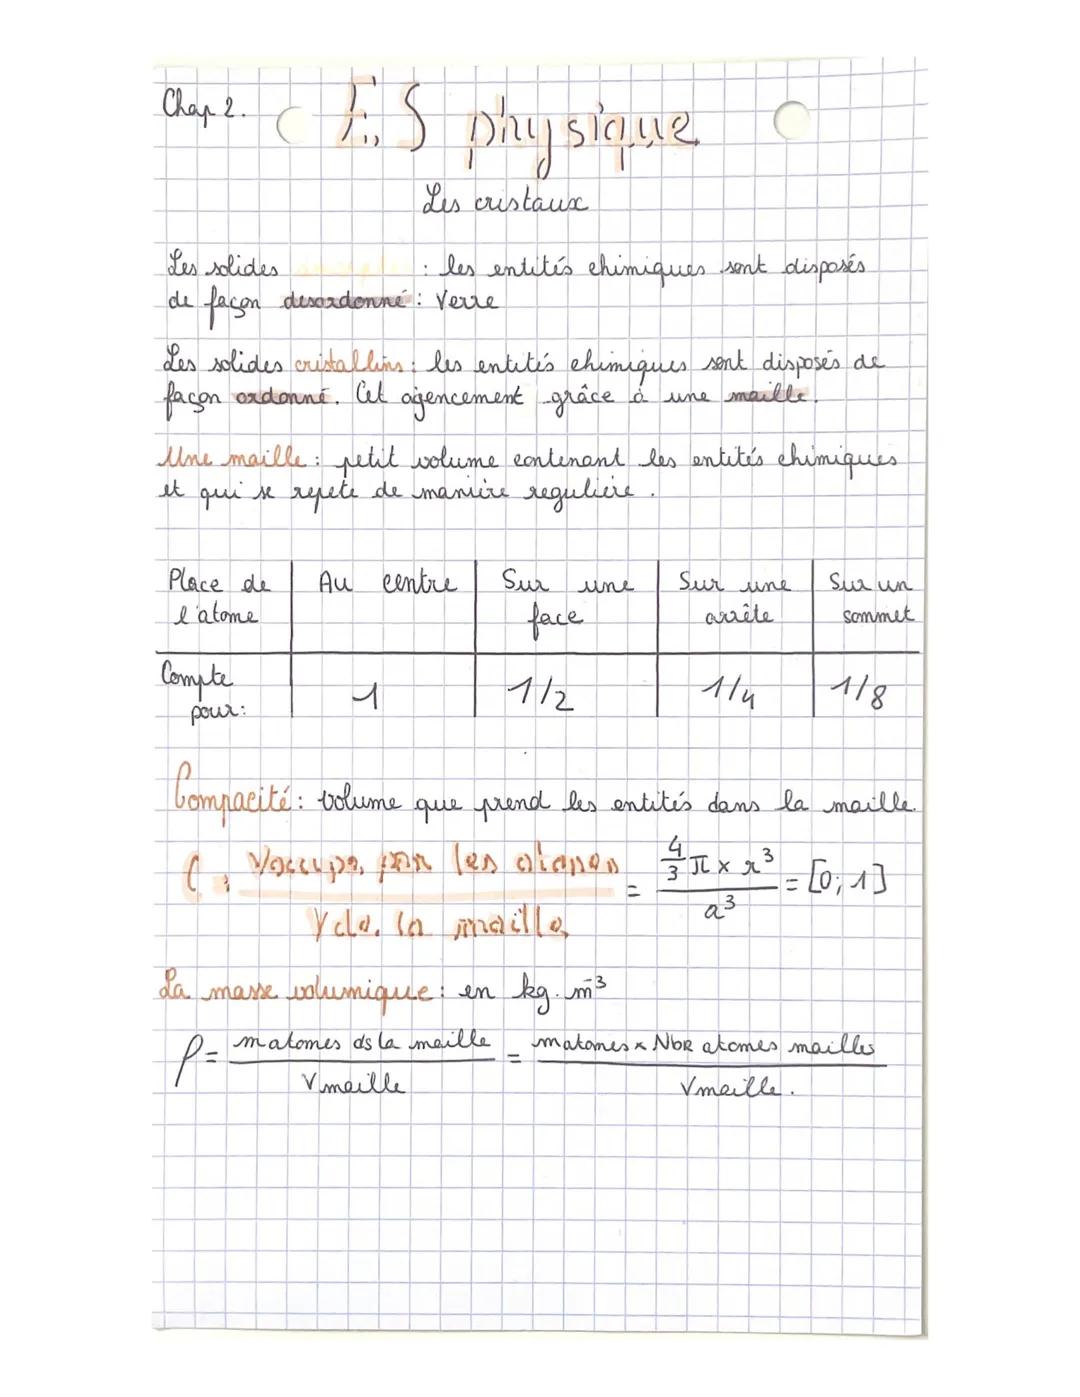 Chap 2.
E.S physique
Les cristaux
Les solides : les entités chimiques sont disposés
de façon desordonné : Verre
Les solides cristallins : les entités chimiques sont disposés de
façon ordonné. Cet agencement grâce à une maille.
Une maille : petit volume contenant les entités chimiques
et qui se repete de manière regulière.
Place de l'atome | Au centre | Sur une face | Sur une arrête | Sur un sommet
Compte pour: | 1 | 1/2 | 1/4 | 1/8
Compacité : volume que prend les entités dans la maille.
C = Voccupé par les atomes / V de la maille = 4/3 π × r³ / a³ = [0; 1]
La masse volumique : en kg.m⁻³
ρ = m atomes ds la maille / V maille = m atomes × Nbr atomes mailles / V maille.